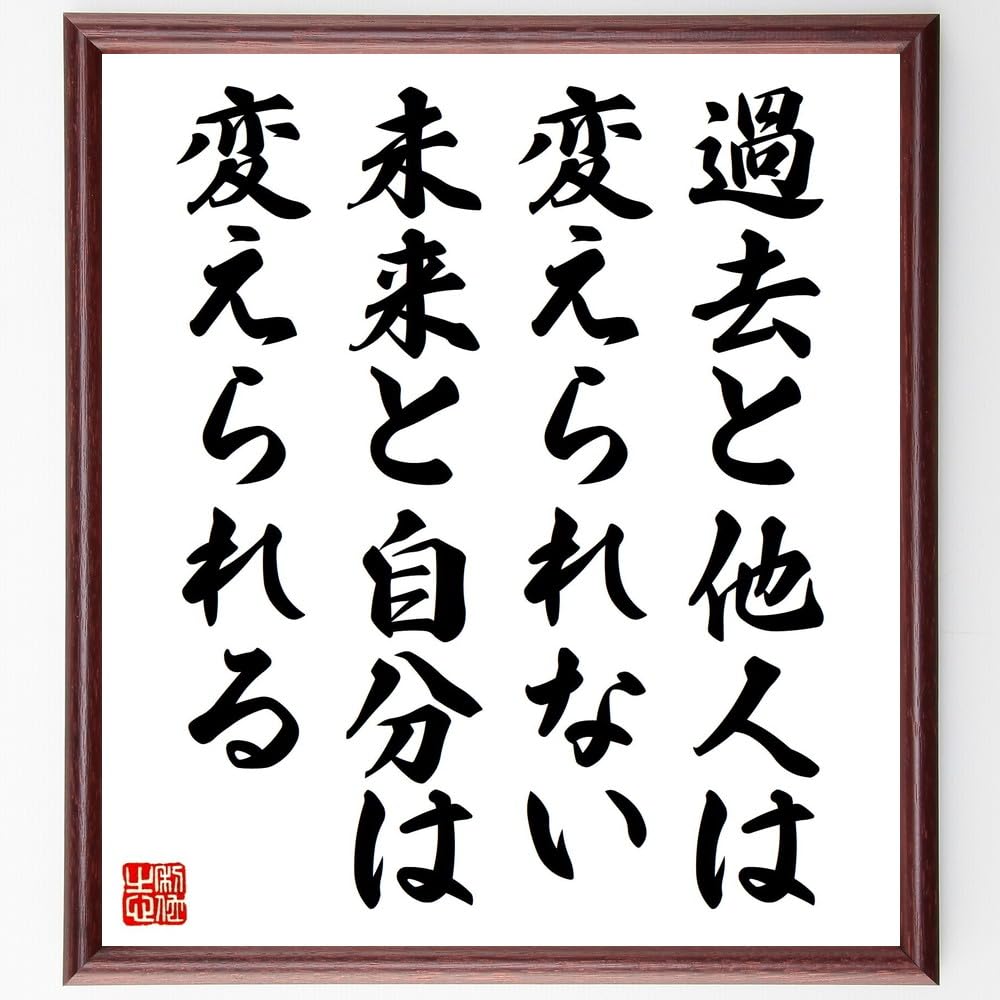 過去と他人は
変えられない
未来と自分は
変えられる